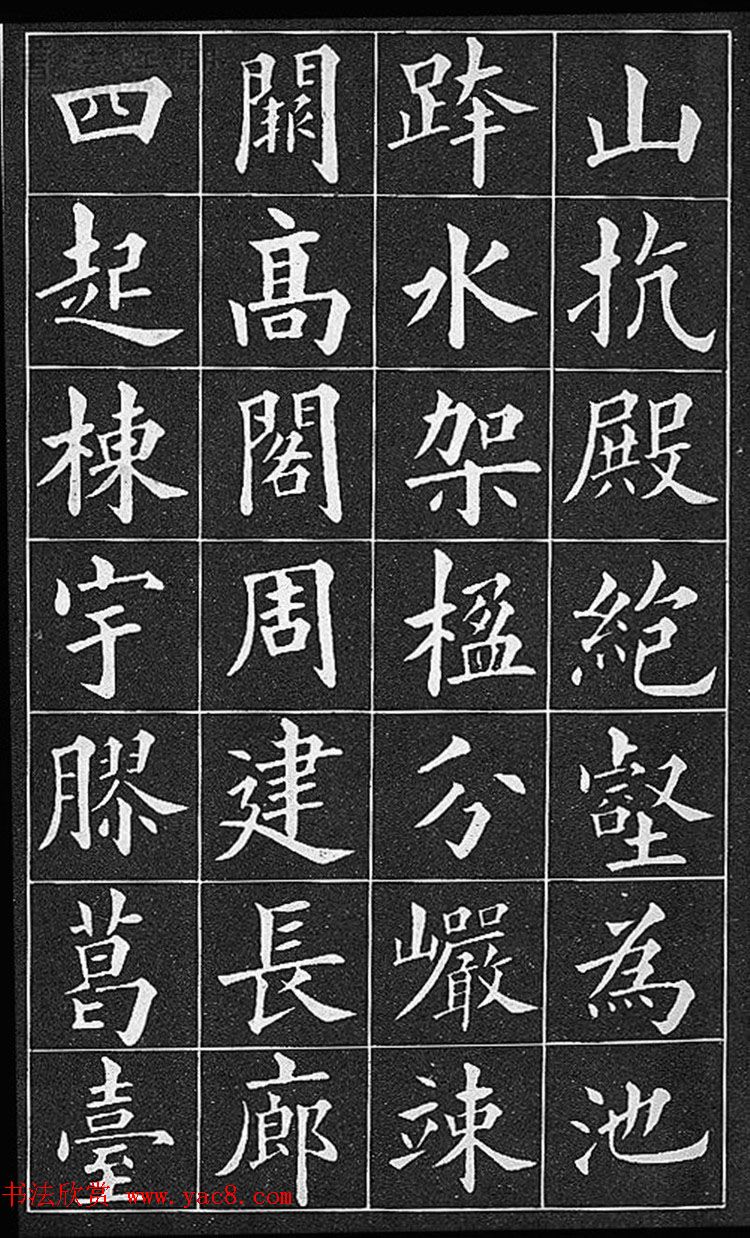 山抗殿絶壑為池
跨水架楹分巖竦
闕高閣周建長廊
四起棟宇膠葛臺
书法欣赏 www.yac8.com